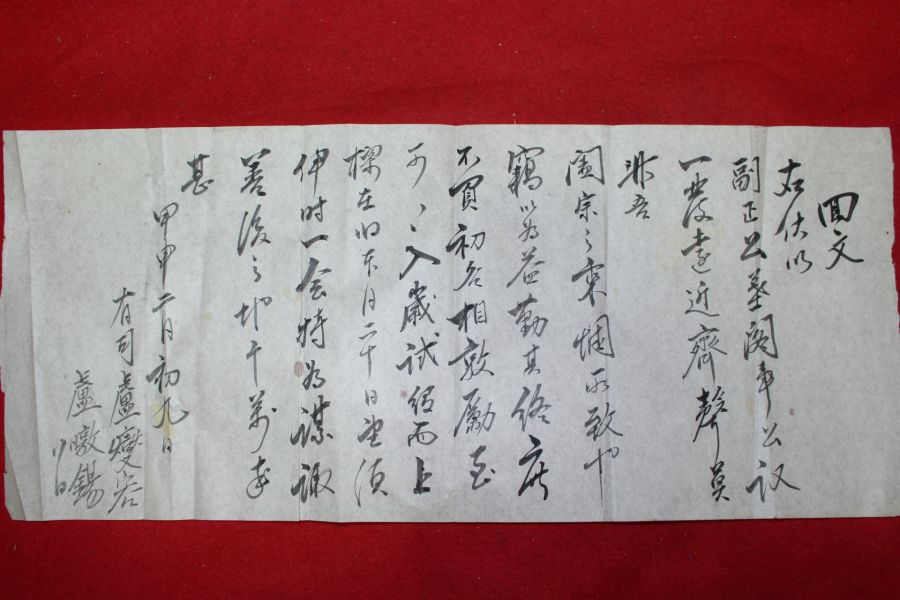 回文
右伏以
副正公墓閣事公议
一發遠近齊聲莫
非吾
闔宗之衷悃所致也
竊以為益勤其終庶
不負初各相敦勵
可〻入歲試役而上
樑在旧本月二十日望須
伊时一会特为谋諏
善後之地千萬幸
甚
甲申二月初九日
有司盧燮容
盧暾錫